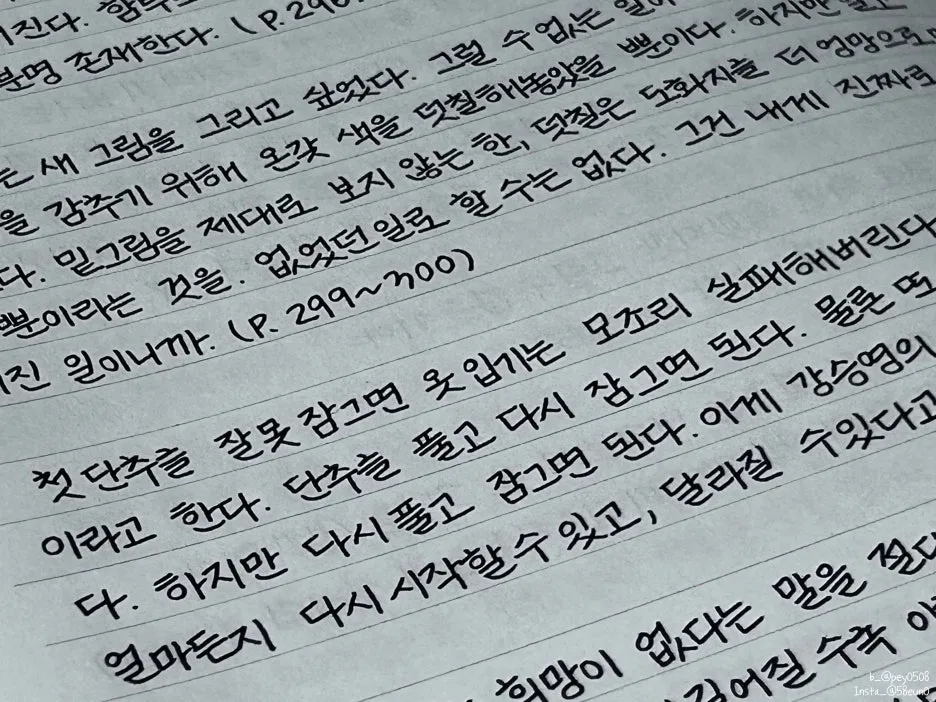 진다. 함부로
분명 존재한다. (P.298
는 새 그림을 그리고 싶었다. 그럴 수 없는 일이
을 감추기 위해 온갖 색을 덧칠해놓았을 뿐이다. 하지만
다. 밑그림을 제대로 보지 않는 한, 덧칠은 도화지를 더 엉망으로
뿐이라는 것을. 없었던 일로 할 수는 없다. 그건 내게 진짜로
진 일이니까. (P. 299~300)
첫 단추를 잘못 잠그면 옷 입기는 모조리 실패해버린다
이라고 한다. 단추를 풀고 다시 잠그면 된다. 물론
다. 하지만 다시 풀고 잠그면 된다. 이게 강승영의
얼마든지 다시 시작할 수 있고, 달라질 수 있다고
희망이 없다는 말을 절대
깊어질 수록
b_@pey0508
Insta_@58eun0